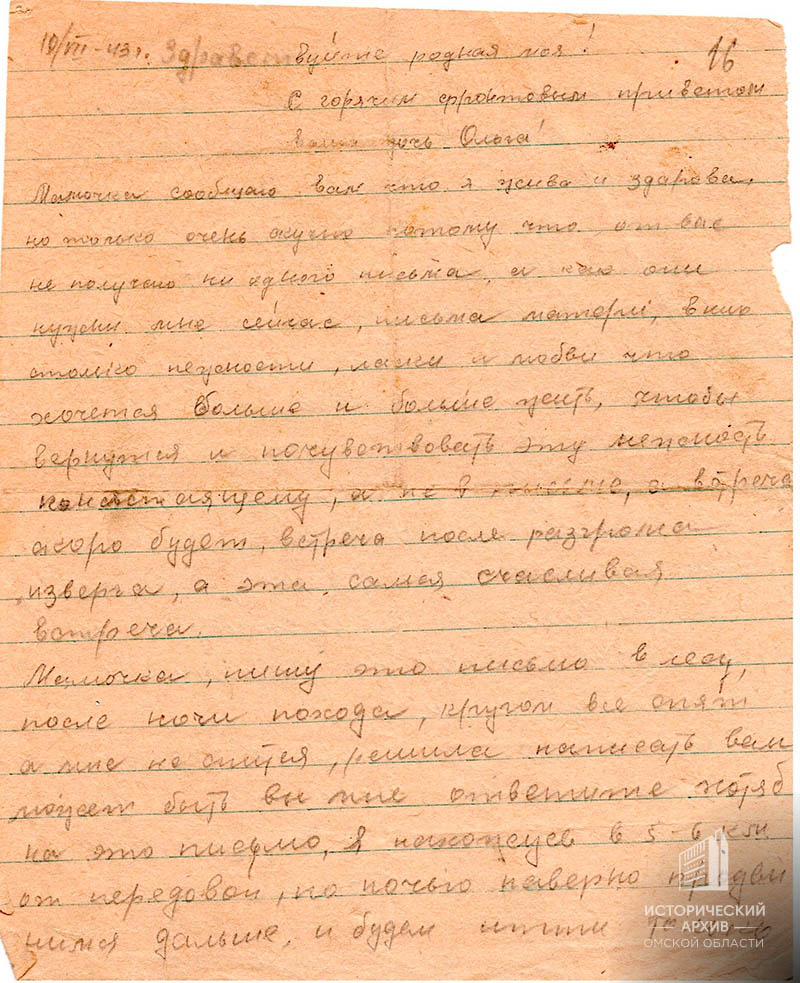 10/VII-43 г. Здравствуйте родная моя! 16
С горячим фронтовым приветом
ваша дочь Ольга!
Мамочка сообщаю вам что я жива и здарова,
но только очень скучно потому что от вас
не получаю ни одного письма, а как они
нужны мне сейчас, письма матери, в них
столько нежности, ласки и любви что
хочется больше и больше жить, чтобы
вернутся и почувствовать эту нежность
понастаящему, а не в письме, а встреча
скоро будет, встреча после разгрома
изверга, а эта самая счасливая
встреча.
Мамочка, пишу это письмо в лесу,
после ночи похода, кругом все спят
а мне не спится, решила написать вам
может быть вы мне ответите хотяб
на это письмо, я нахожусь в 5-6 клм
от передовой, но ночью наверно продви
нимся дальше, и будем итти
ИСТОРИЧЕСКИЙ
АРХИВ
ОМСКОЙ ОБЛАСТИ